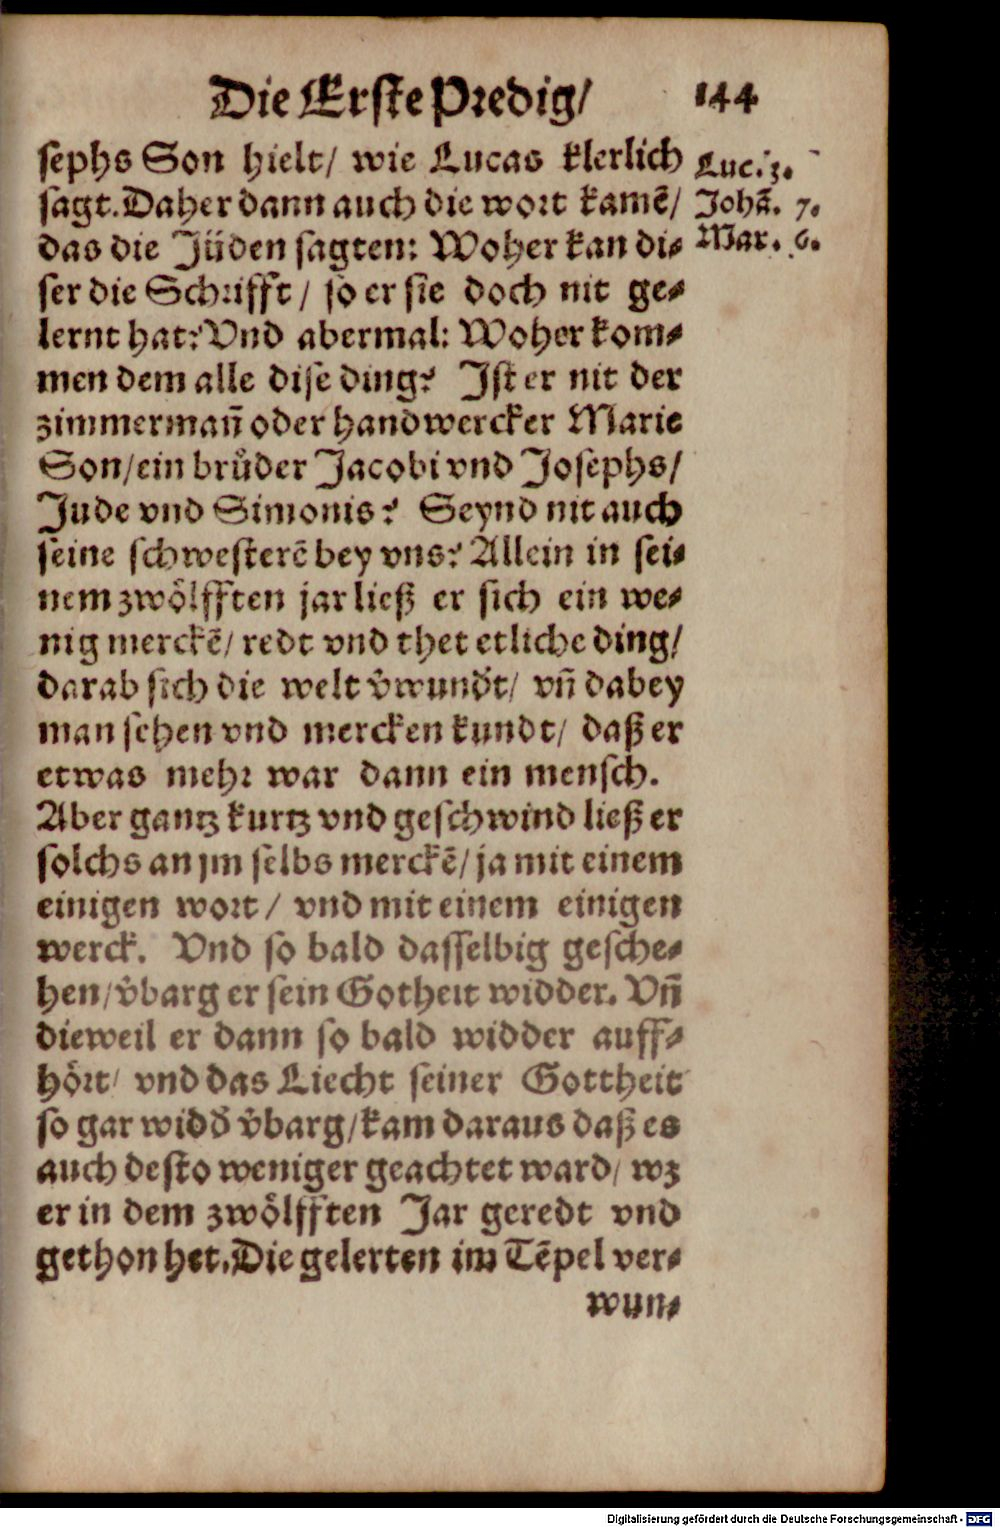 Die Erste Predig/ 144
sephs Son hielt/ wie Lucas klerlich
Luc. 3.
sagt. Daher dann auch die wort kamē/
Johā. 7.
das die Jüden sagten: Woher kan di-
Mar. 6.
ser die Schrifft/ so er sie doch nit ge-
lernt hat? Vnd abermal: Woher kom-
men dem alle dise ding? Jst er nit der
zimmermañ oder handwercker Marie
Son/ ein brůder Jacobi vnd Josephs/
Jude vnd Simonis? Seynd nit auch
seine schwesterē bey vns? Allein in sei-
nem zwölfften jar ließ er sich ein we-
nig merckē/ redt vnd thet etliche ding/
darab sich die welt v̊wundd̕t/ vñ dabey
man sehen vnd mercken kundt/ daß er
etwas mehr war dann ein mensch.
Aber gantz kurtz vnd geschwind ließ er
solchs an jm selbs merckē/ ja mit einem
einigen wort/ vnd mit einem einigen
werck. Vnd so bald dasselbig gesche-
hen/ v̊barg er sein Gotheit widder. Vñ
dieweil er dann so bald widder auff-
hört/ vnd das Liecht seiner Gottheit
so gar widd̕ v̊barg/ kam daraus daß es
auch desto weniger geachtet ward/ wz
er in dem zwölfften Jar geredt vnd
gethon het. Die gelerten im Tēpel ver-
wun-
Digitalisierung gefördert durch die Deutsche Forschungsgemeinschaft - DFG